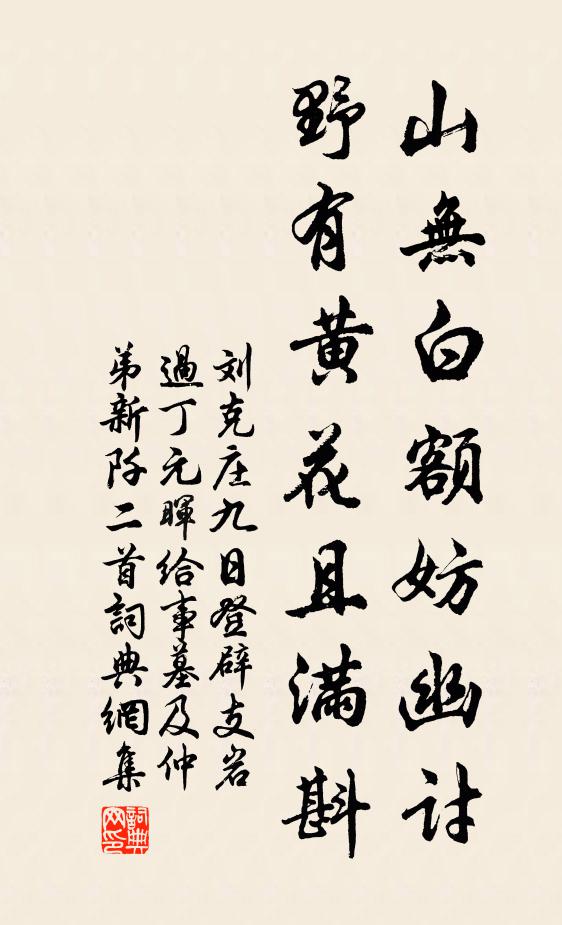 山無白額妨幽討
野有黄花且满斟
刘克庄九日登辟支岩
過丁元暉给事墓及仲
弟新阡二首詞典網集
詞典
网印